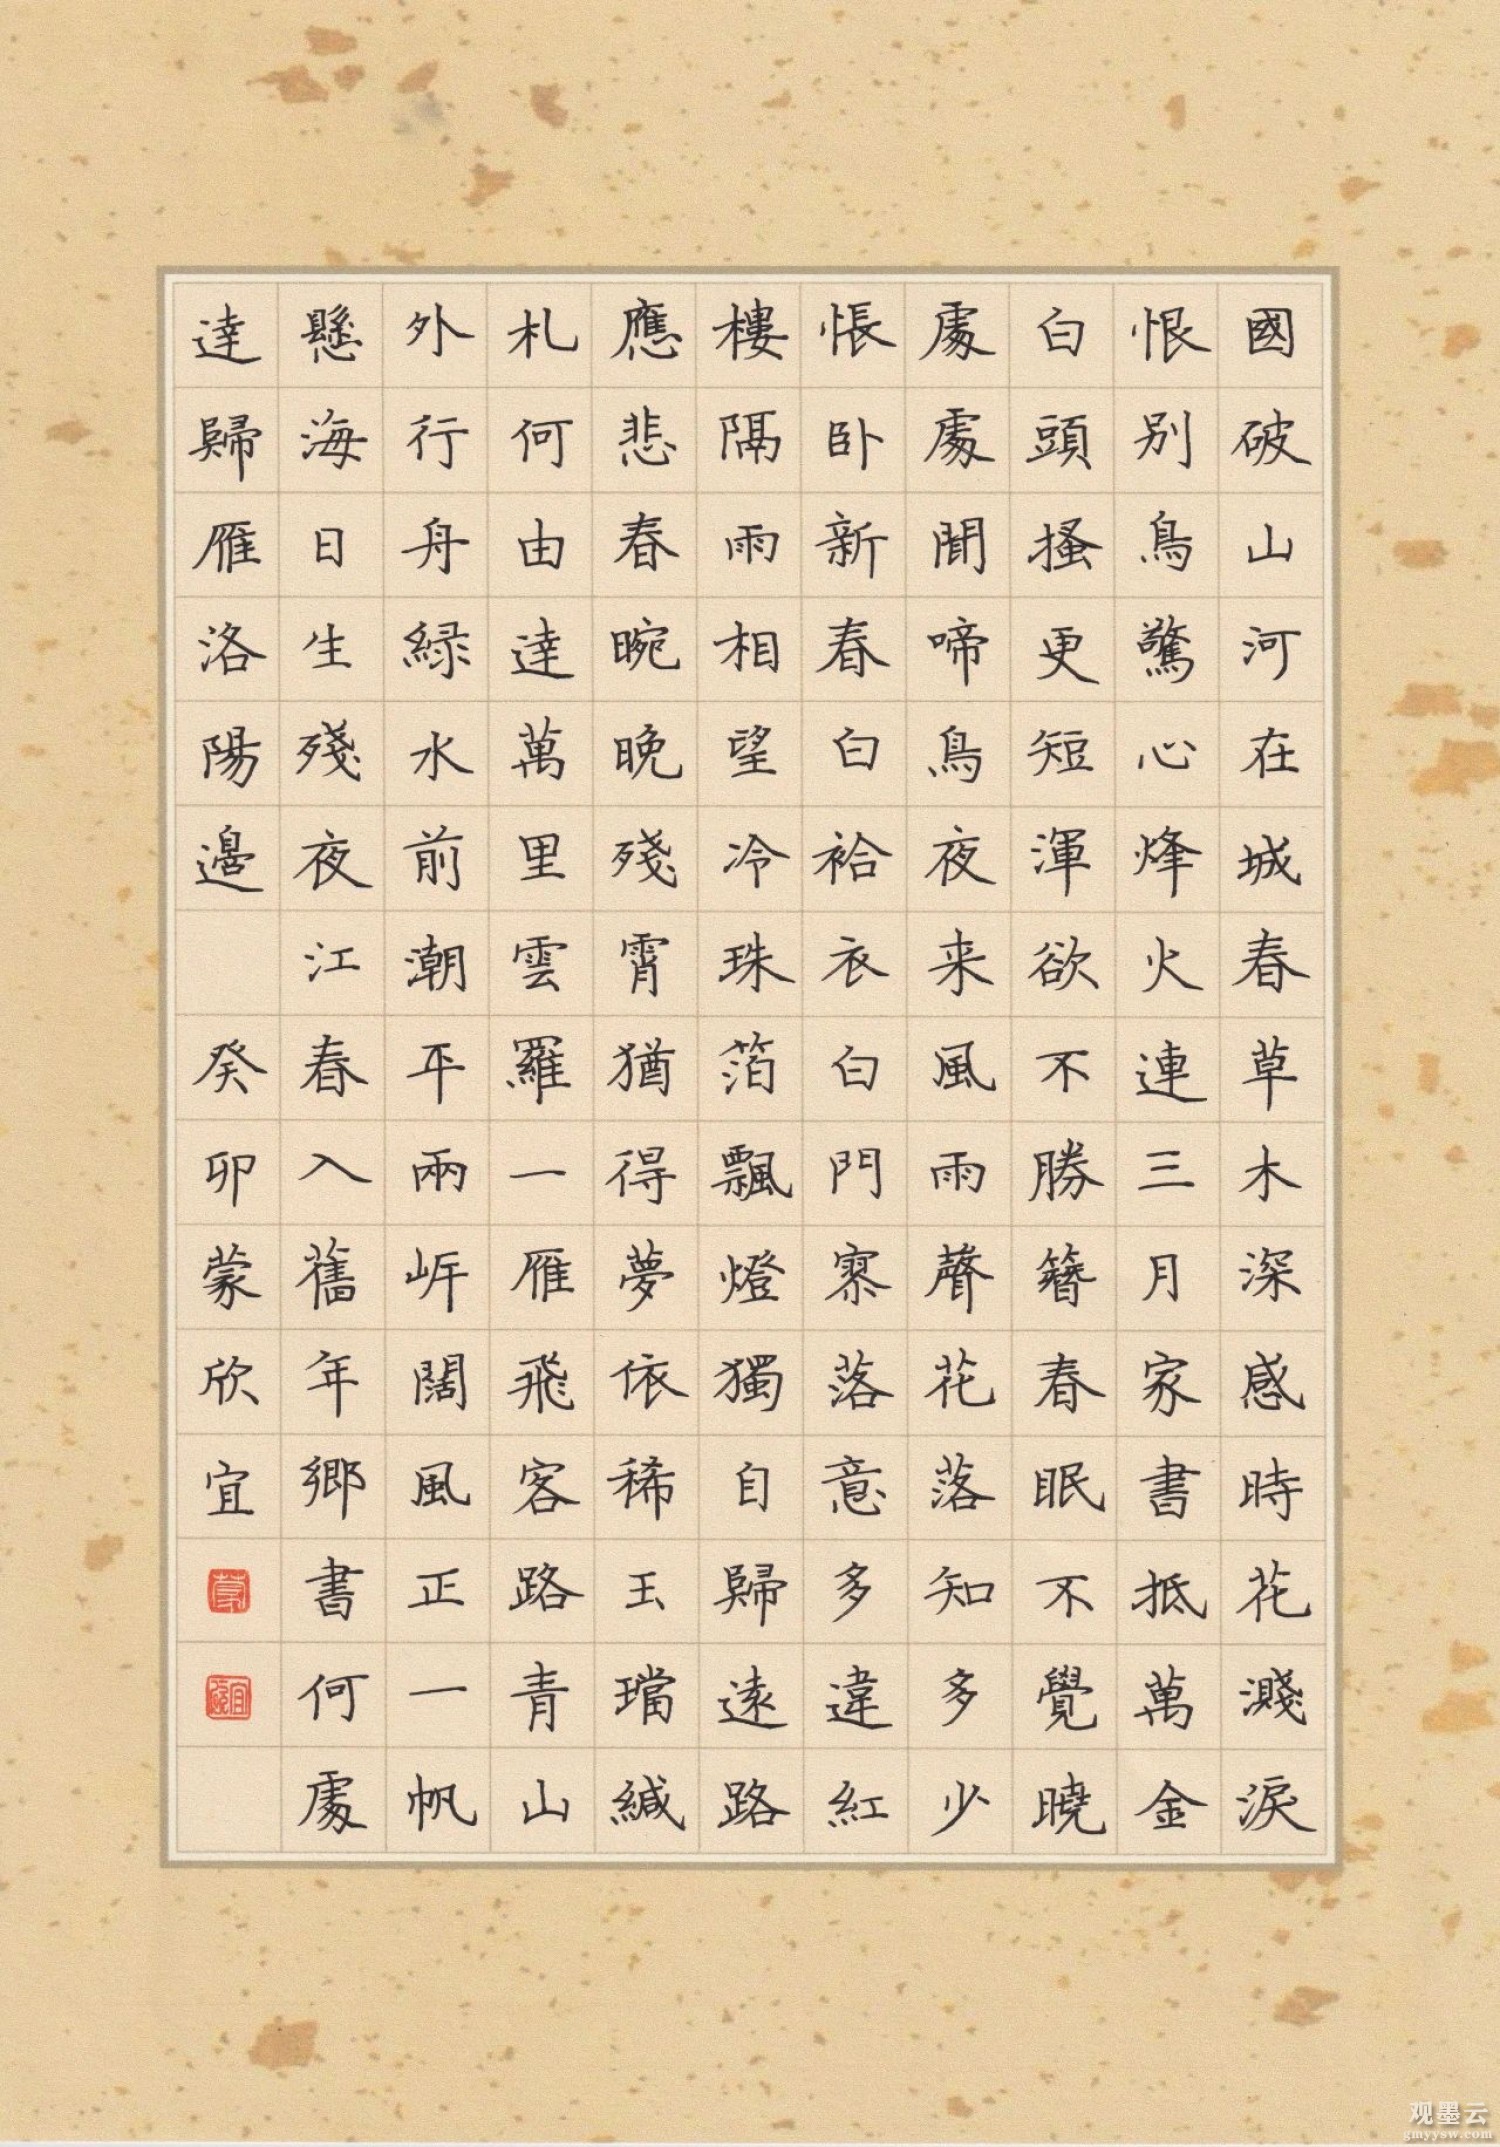 國破山河在城春草木深感時花濺淚
恨別鳥驚心烽火連三月家書抵萬金
白頭搔更短渾欲不勝簪春眠不覺曉
處處聞啼鳥夜来風雨聲花落知多少
悵卧新春白袷衣白門寥落意多違紅
樓隔雨相望冷珠箔飄燈獨自歸遠路
應悲春晼晚殘宵猶得夢依稀玉璫緘
札何由達萬里雲羅一雁飛客路青山
外行舟緑水前潮平兩岸闊風正一帆
懸海日生殘夜江春入舊年鄉書何處
達歸雁洛陽邊 癸卯蒙欣宜
观墨云
gmyysw.com